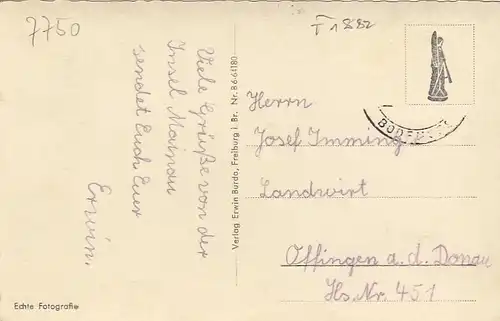 7750
F 1882
Viele Grüße von der
Insel Mainau
sendet Euch Euer
Erwin.
Verlag Erwin Burda, Freiburg i. Br. Nr. B 6-61180
BODENSEE
Herrn
Josef Imming
Landwirt
Offingen a. d. Donau
Hs. Nr. 451
Echte Fotografie